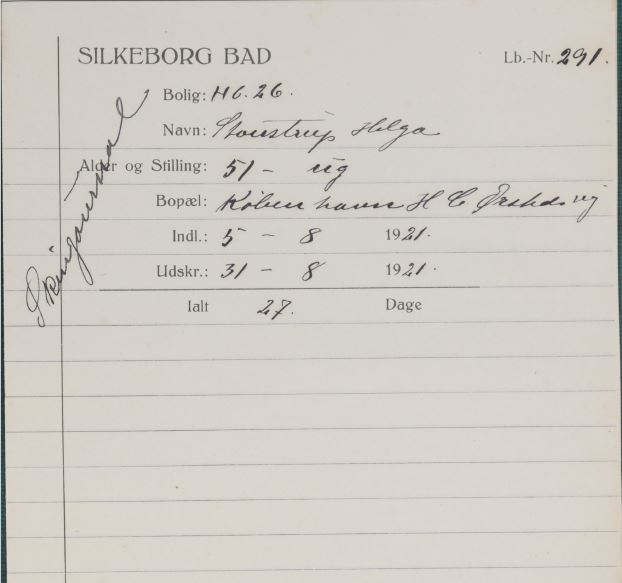 SILKEBORG BAD Lb.-Nr. 291.
Bolig: H6. 26.
Navn: Stoustrup Helga
Alder og Stilling: 51 - ug
Bopæl: København H C Ørstedsvej
Indl.: 5 - 8 1921.
Udskr.: 31 - 8 1921.
Ialt 27. Dage